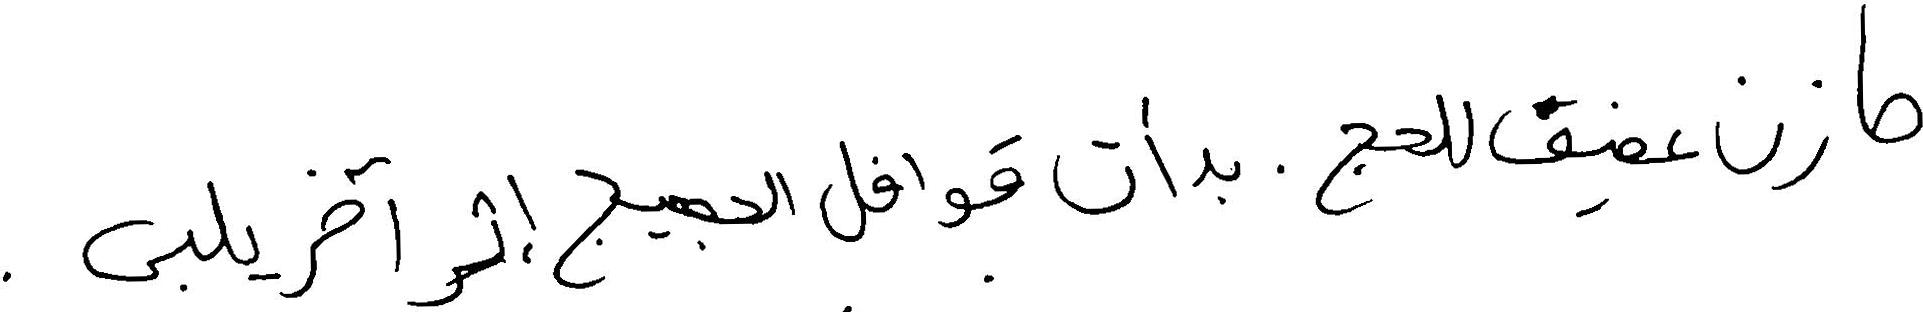 مازن عضيف للحج . بدأت قوافل الحجيج إثر آخر يلبى .